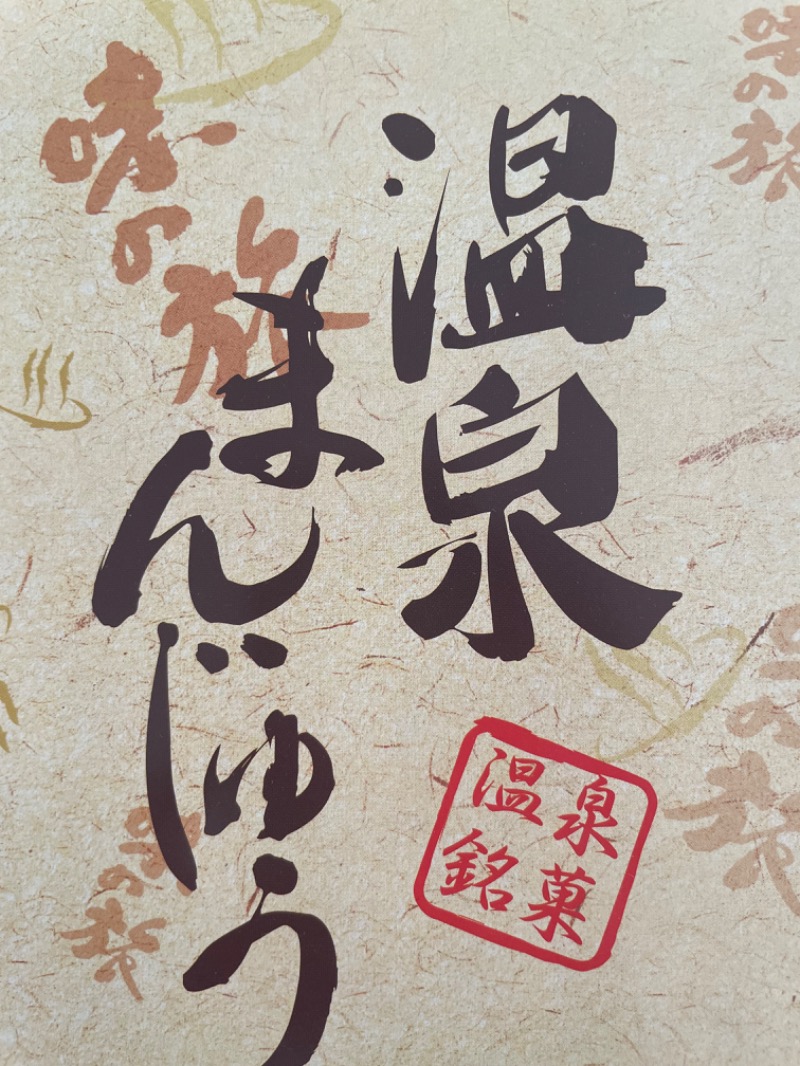 温泉
まんじゅう
温泉
銘菓
味の旅
味の旅
味の旅
味の旅